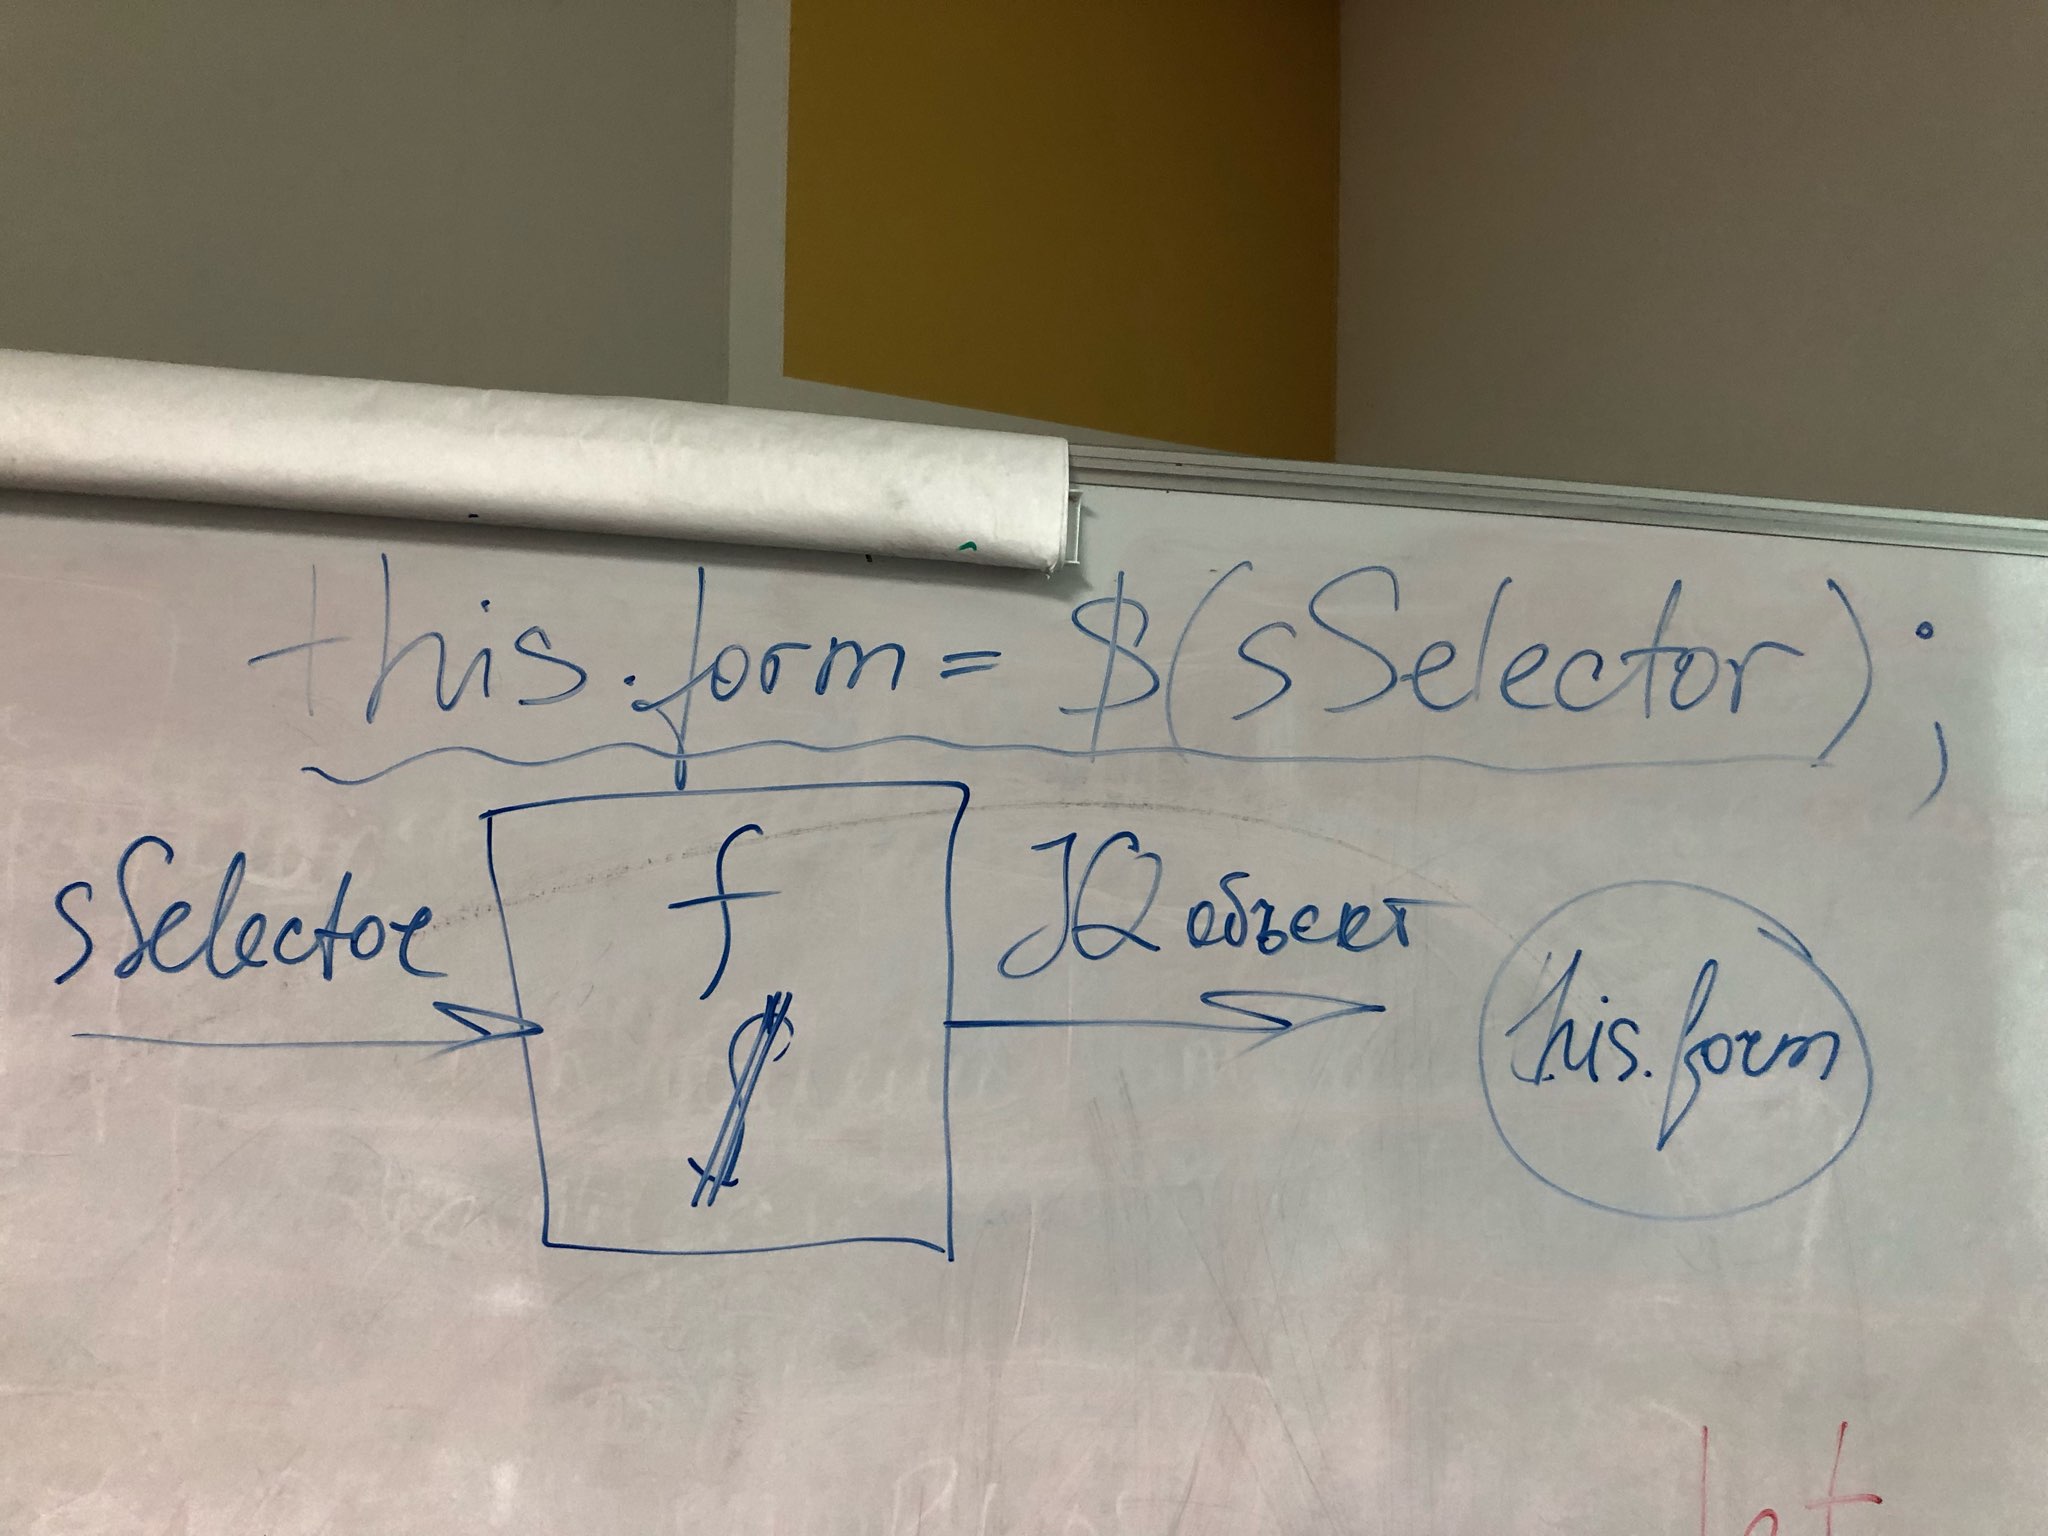 this.form = $(sSelector);
sSelector
f
$
JQ объект
this.form
let